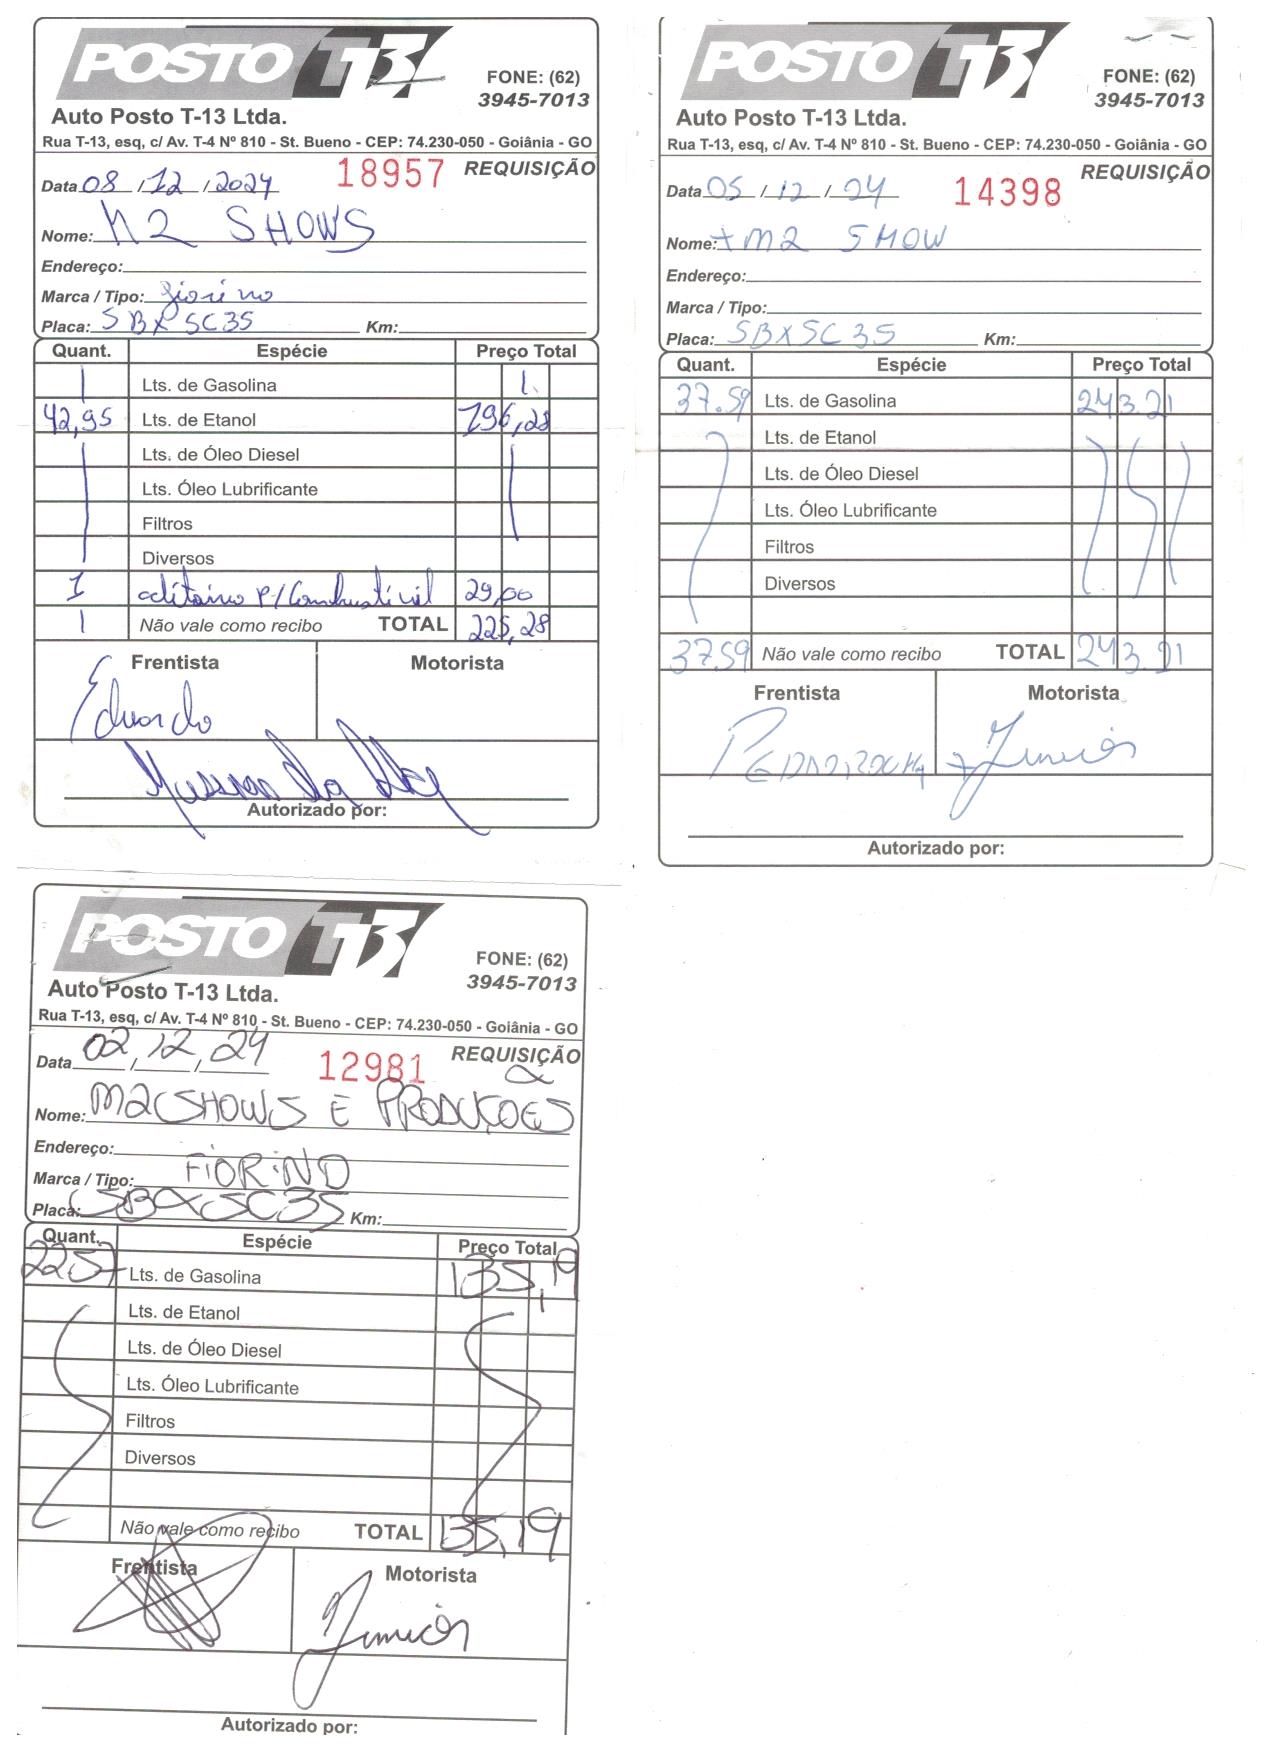 POSTO T-13
FONE: (62)
3945-7013
Auto Posto T-13 Ltda.
Rua T-13, esq, c/ Av. T-4 Nº 810 - St. Bueno - CEP: 74.230-050 - Goiânia - GO
REQUISIÇÃO
Data 08 / 12 / 2024 18957
Nome: M2 SHOWS
Endereço:
Marca / Tipo: fiorino
Placa: SBX5C35 Km:
Quant. Espécie Preço Total
Lts. de Gasolina
42,95 Lts. de Etanol 196,28
Lts. de Óleo Diesel
Lts. Óleo Lubrificante
Filtros
Diversos
1 aditivo P/ Combustível 29,00
Não vale como recibo TOTAL 225,28
Frentista Motorista
Eduardo
Autorizado por:
POSTO T-13
FONE: (62)
3945-7013
Auto Posto T-13 Ltda.
Rua T-13, esq, c/ Av. T-4 Nº 810 - St. Bueno - CEP: 74.230-050 - Goiânia - GO
REQUISIÇÃO
Data 05 / 12 / 24 14398
Nome: + M2 SHOW
Endereço:
Marca / Tipo:
Placa: SBX5C35 Km:
Quant. Espécie Preço Total
37.59 Lts. de Gasolina 243.21
Lts. de Etanol
Lts. de Óleo Diesel
Lts. Óleo Lubrificante
Filtros
Diversos
37.59 Não vale como recibo TOTAL 243.21
Frentista Motorista
PEDRO ROCHA + Junior
Autorizado por:
POSTO T-13
FONE: (62)
3945-7013
Auto Posto T-13 Ltda.
Rua T-13, esq, c/ Av. T-4 Nº 810 - St. Bueno - CEP: 74.230-050 - Goiânia - GO
REQUISIÇÃO
Data 02 / 12 / 24 12981
Nome: M2 SHOWS E PRODUÇOES
Endereço:
Marca / Tipo: FIORINO
Placa: SBX5C35 Km:
Quant. Espécie Preço Total
Lts. de Gasolina 135,19
Lts. de Etanol
Lts. de Óleo Diesel
Lts. Óleo Lubrificante
Filtros
Diversos
Não vale como recibo TOTAL 135,19
Frentista Motorista
Junior
Autorizado por: